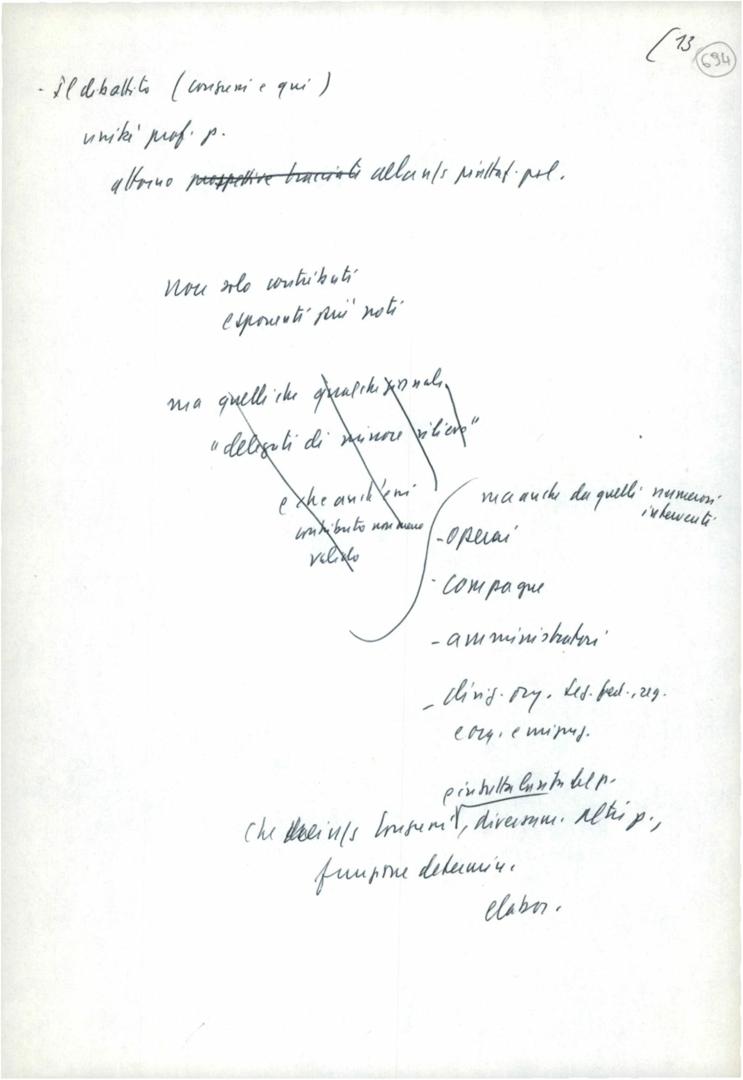 [13
694
- Il dibattito (congressi e qui)
unità prof. p.
attorno prospettive tracciate alla n/s piattaf. pol.
non solo contributi
esponenti più noti
ma quelli che qualche giornale
"delegati di minore rilievo"
e che anch'essi
contributo non meno
valido
ma anche da quelli numerosi
interventi
- operai
- compagne
- amministratori
- dirig. org. sez. fed., reg.
e org. e
e in tutta la vita del p.
che nei n/s congressi, diversam. altri p.,
funzione determin.
elabor.